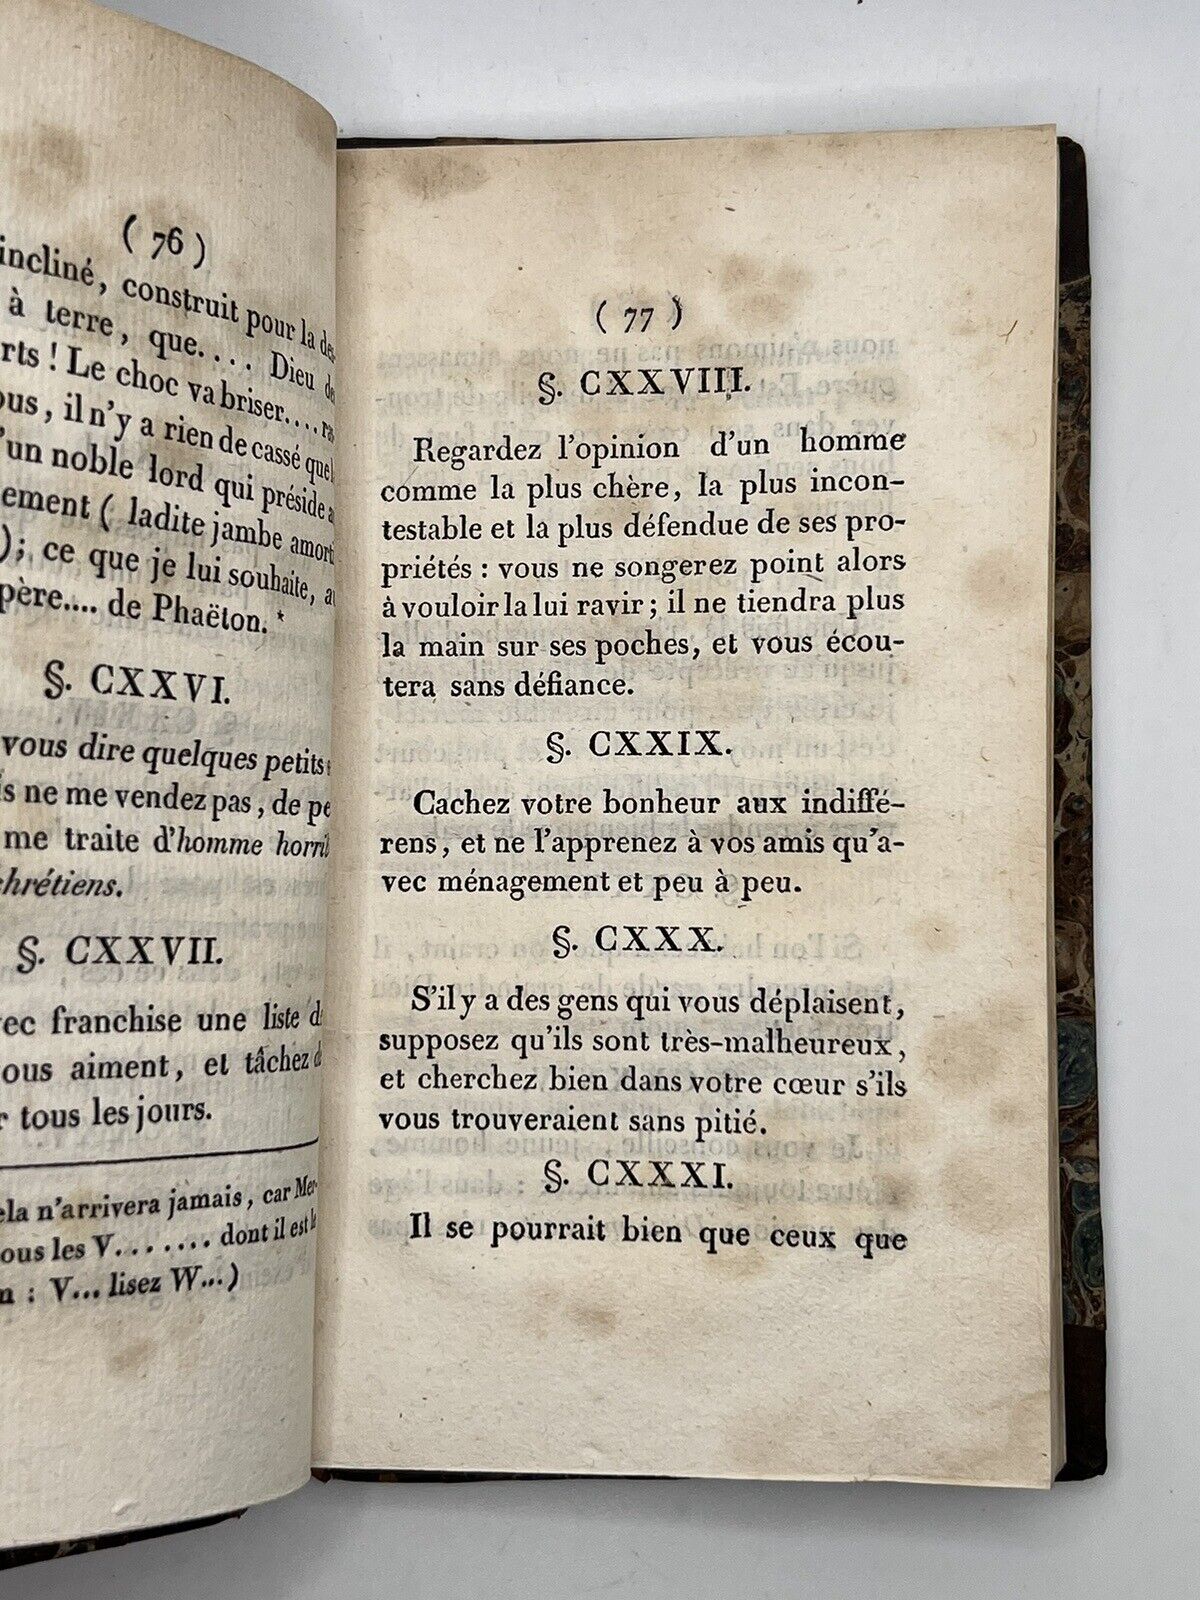 ( 76 )
incliné, construit pour la des-
à terre, que.... Dieu de
rts ! Le choc va briser....
ous, il n'y a rien de cassé quel
'un noble lord qui préside a
ement ( ladite jambe amorti
); ce que je lui souhaite, au
père.... de Phaëton. *
§. CXXVI.
vous dire quelques petits
s ne me vendez pas, de pe
me traite d'homme horrib
chrétiens.
§. CXXVII.
vec franchise une liste d
ous aiment, et tâchez d
r tous les jours.
ela n'arrivera jamais, car Mer-
ous les V....... dont il est le
n : V... lisez W...)
( 77 )
§. CXXVIII.
Regardez l'opinion d'un homme
comme la plus chère, la plus incon-
testable et la plus défendue de ses pro-
priétés : vous ne songerez point alors
à vouloir la lui ravir ; il ne tiendra plus
la main sur ses poches, et vous écou-
tera sans défiance.
§. CXXIX.
Cachez votre bonheur aux indiffé-
rens, et ne l'apprenez à vos amis qu'a-
vec ménagement et peu à peu.
§. CXXX.
S'il y a des gens qui vous déplaisent,
supposez qu'ils sont très-malheureux,
et cherchez bien dans votre cœur s'ils
vous trouveraient sans pitié.
§. CXXXI.
Il se pourrait bien que ceux que